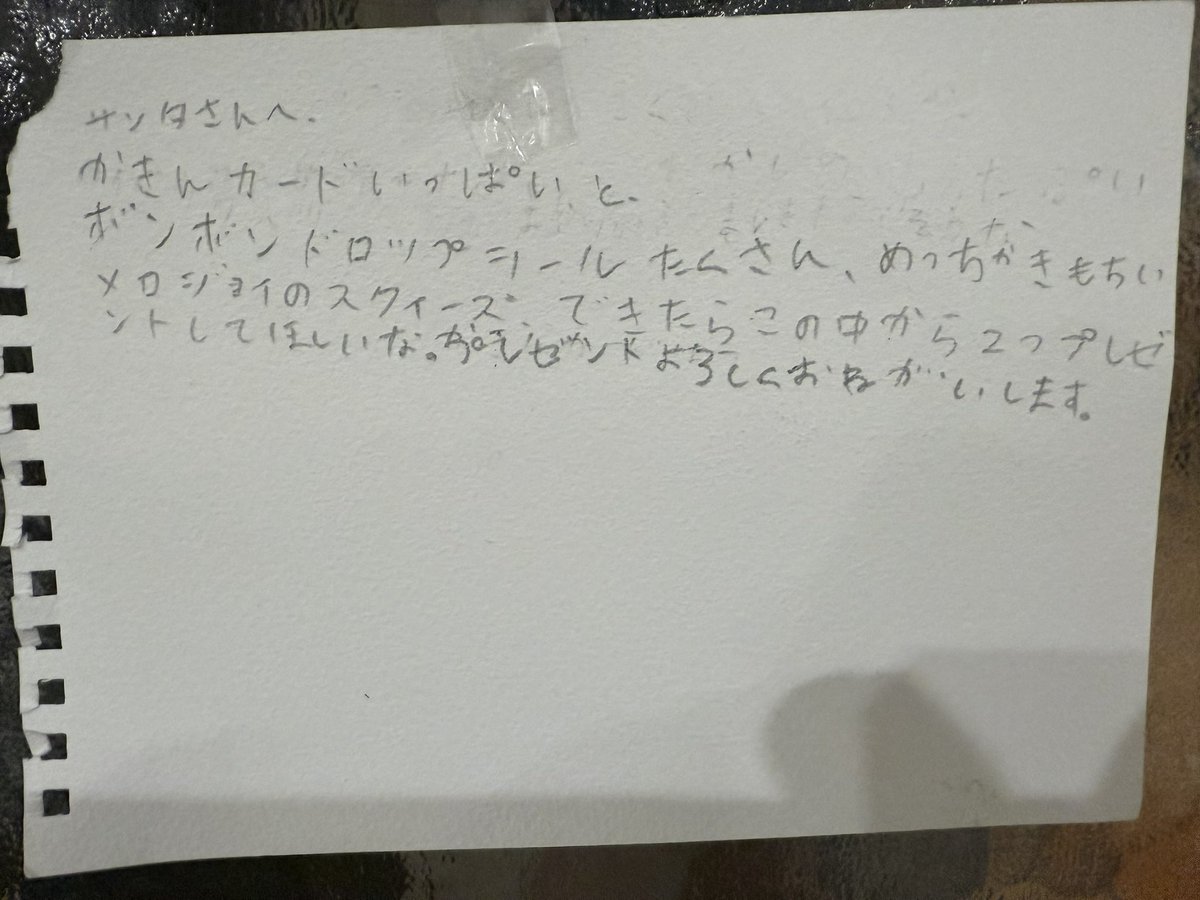 サンタさんへ.
かきんカードいっぱいと、
ボンボンドロップシールたくさん、めっちゃきもちい
メロジョイのスクイーズ、できたらこの中から2つプレゼ
ントしてほしいな。プレゼントよろしくおねがいします。